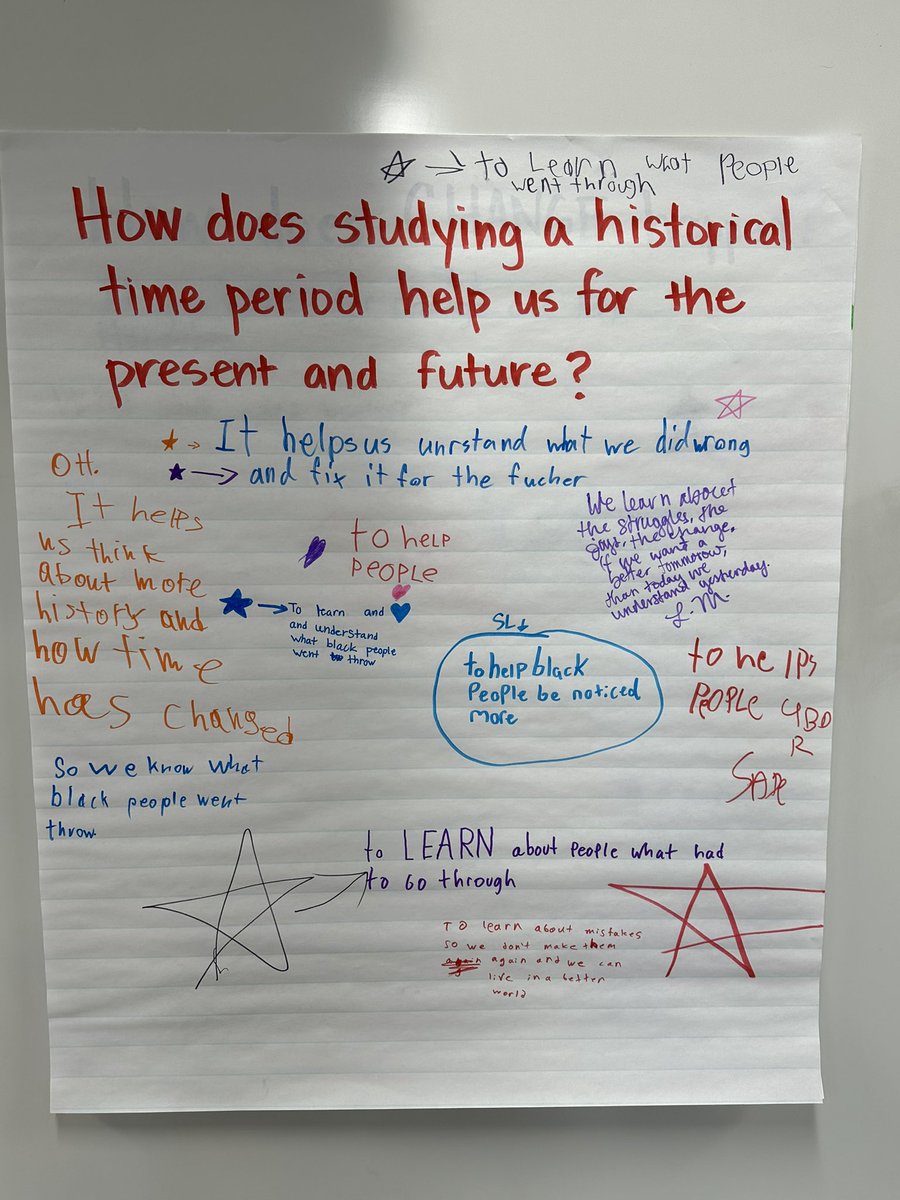 to Learn what People
went through
How does studying a historical
time period help us for the
present and future?
It helps us unrstand what we did wrong
and fix it for the fucher
OH.
It helps
us think
about more
history and
how time
has changed
to help
PEOPLE
We learn about
the struggles, the
joys, the change.
If we want a
better tommorow,
than today we
understand yesterday.
L.M.
To learn and
and understand
what black people
went throw
SL
to help black
People be noticed
more
to he lPs
PEOPLE
So we know what
black people went
throw
to LEARN about People what had
to Go through
To learn about mistakes
so we don't make them
again again and we can
live in a better
world